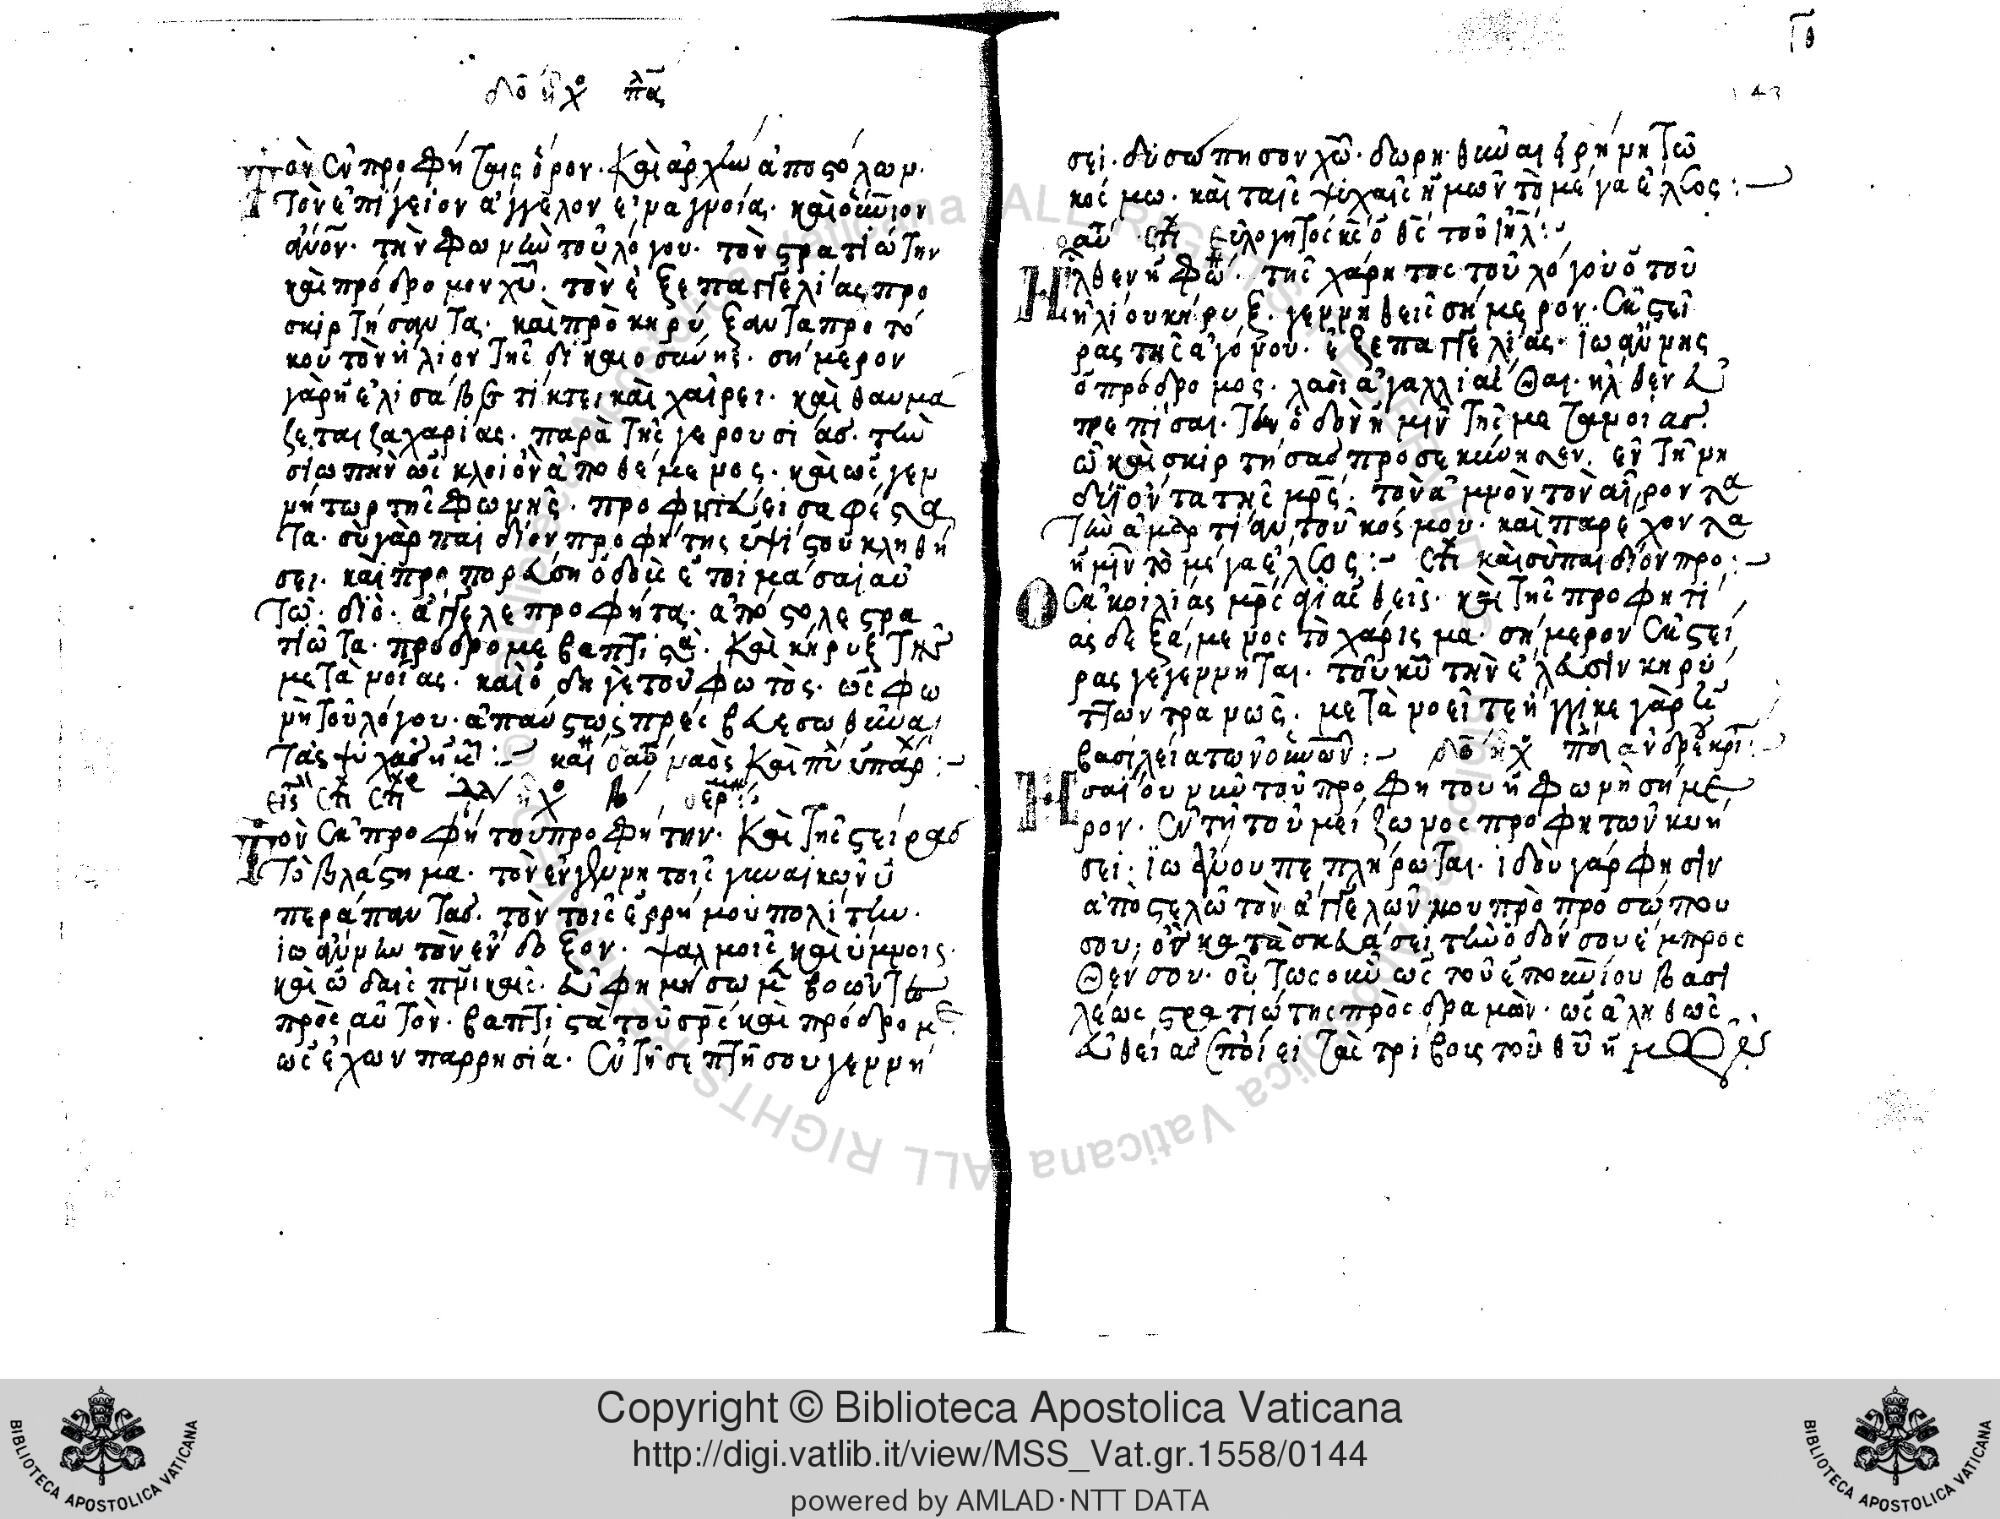 Τὸν ἐν προφήταις ὅρον· καὶ ἀρχὴν ἀποστόλων·
τὸν ἐπίγειον ἄγγελον
τὴν φωνὴν τοῦ λόγου· τὸν στρατιώτην
καὶ πρόδρομον χυ· τὸν ἐξ ἐπαγγελίας προ
σκιρτήσαντα· καὶ προκηρύξαντα προ το
κου τὸν ἥλιον τῆς δικαιοσύνης· σήμερον
γὰρ ἡ ἐλισάβετ τίκτει καὶ χαίρει· καὶ θαυμά
ζεται ζαχαρίας· παρὰ τῆς γερουσίας· τὴν
σιωπὴν ὡς κλοιὸν ἀποθέμενος· καὶ ὡς γεν
νήτωρ τῆς φωνῆς· προφητεύει σαφέστα
τα· σὺ γὰρ παιδίον προφήτης ὑψίστου κληθή
σει· καὶ προπορεύση ὁδὸν ἑτοιμάσαι αὐ
τῶ· διὸ· ἄγγελε προφῆτα· ἀπόστολε στρα
τιῶτα· πρόδρομε βαπτιστὰ· καὶ κήρυξ τῆς
μετανοίας· καὶ ὁδηγὲ τοῦ φωτὸς· ὡς φω
νὴ τοῦ λόγου· ἀπαύστως πρέσβευε σωθῆναι
τὰς ψυχὰς ἡμ:-
Τὸν ἐκ προφήτου προφήτην· καὶ τῆς στείρας
τὸ βλάστημα· τὸν ἐν γεννητοῖς γυναικῶν ὑ
περάπαντας· τὸν τοῖς ἐρρήμου πολίτην·
ἰωάννην τὸν ἔνδοξον· ψαλμοῖς καὶ ὕμνοις·
καὶ ὠδαῖς πνικαῖς· εὐφημήσωμεν βοῶντες
πρὸς αὐτὸν· βαπτιστὰ τοῦ σρς καὶ πρόδρομε
ὡς ἔχων παρρησία· ἐν τῆ σεπτῆ σου γεννή
143
σει· δυσώπησον χν· δωρηθῆναι εἰρήνη τῶ
κόσμω· καὶ ταῖς ψυχαῖς ἡμῶν τὸ μέγα ἔλεος:-
εὐλογητὸς κς ὁ θς τοῦ ιηλ:-
Ἦλθεν ἡ φω· τῆς χάριτος τοῦ λόγου ὁ τοῦ
ἡλίου κήρυξ· γεννηθεὶς σήμερον· ἐκ στεί
ρας τῆς ἀγόνου· ἐξ ἐπαγγελίας· ἰωάννης
ὁ πρόδρομος· λαοὶ ἀγαλλιᾶσθαι· ἦλθεν εὐ
πρεπίσαι· τὴν ὁδὸν ἡμῖν τῆς μετανοίας·
ὃ καὶ σκιρτήσας προσεκύνησεν· ἐν τῆ νη
δύϊ ὄντα τῆς μρς· τὸν ἀμνὸν τὸν αἴροντα
τὴν ἁμαρτίαν τοῦ κόσμου· καὶ παρέχοντα
ἡμῖν τὸ μέγα ἔλεος:- στι καὶ σὺ παιδίον προ:-
Ὁ ἐκ κοιλίας μρς ἁγιασθεὶς· καὶ τῆς προφητεί
ας δεξάμενος τὸ χάρισμα· σήμερον ἐκ στεί
ρας γεγέννηται· τοῦ κυ τὴν ἔλευσιν κηρύ
ττων τρανῶς· μετανοεῖτε ἤγγικε γὰρ ἡ
βασιλεία τῶν οὐνῶν:-
Ἡσαίου νῦν τοῦ προφήτου ἡ φωνὴ σήμε
ρον· ἐν τῆ τοῦ μείζωνος προφητῶν κυή
σει· ἰωάννου πεπλήρωται· ἰδοὺ γάρ φησιν
ἀποστελῶ τὸν ἄγγελών μου πρὸ προσώπου
σου, ὃν κατασκευάσει τὴν ὁδόν σου ἔμπροσ
θεν σου· οὕτως οὖν ὡς τοῦ ἐπουνίου βασι
λέως στρατιώτης προσδραμὼν· ὡς ἀληθῶς
εὐθείας ἐποίει ταῖς τρίβοις τοῦ θυ ἡμ
Copyright © Biblioteca Apostolica Vaticana
http://digi.vatlib.it/view/MSS_Vat.gr.1558/0144
powered by AMLAD·NTT DATA
BIBLIOTECA APOSTOLICA VATICANA
BIBLIOTECA APOSTOLICA VATICANA